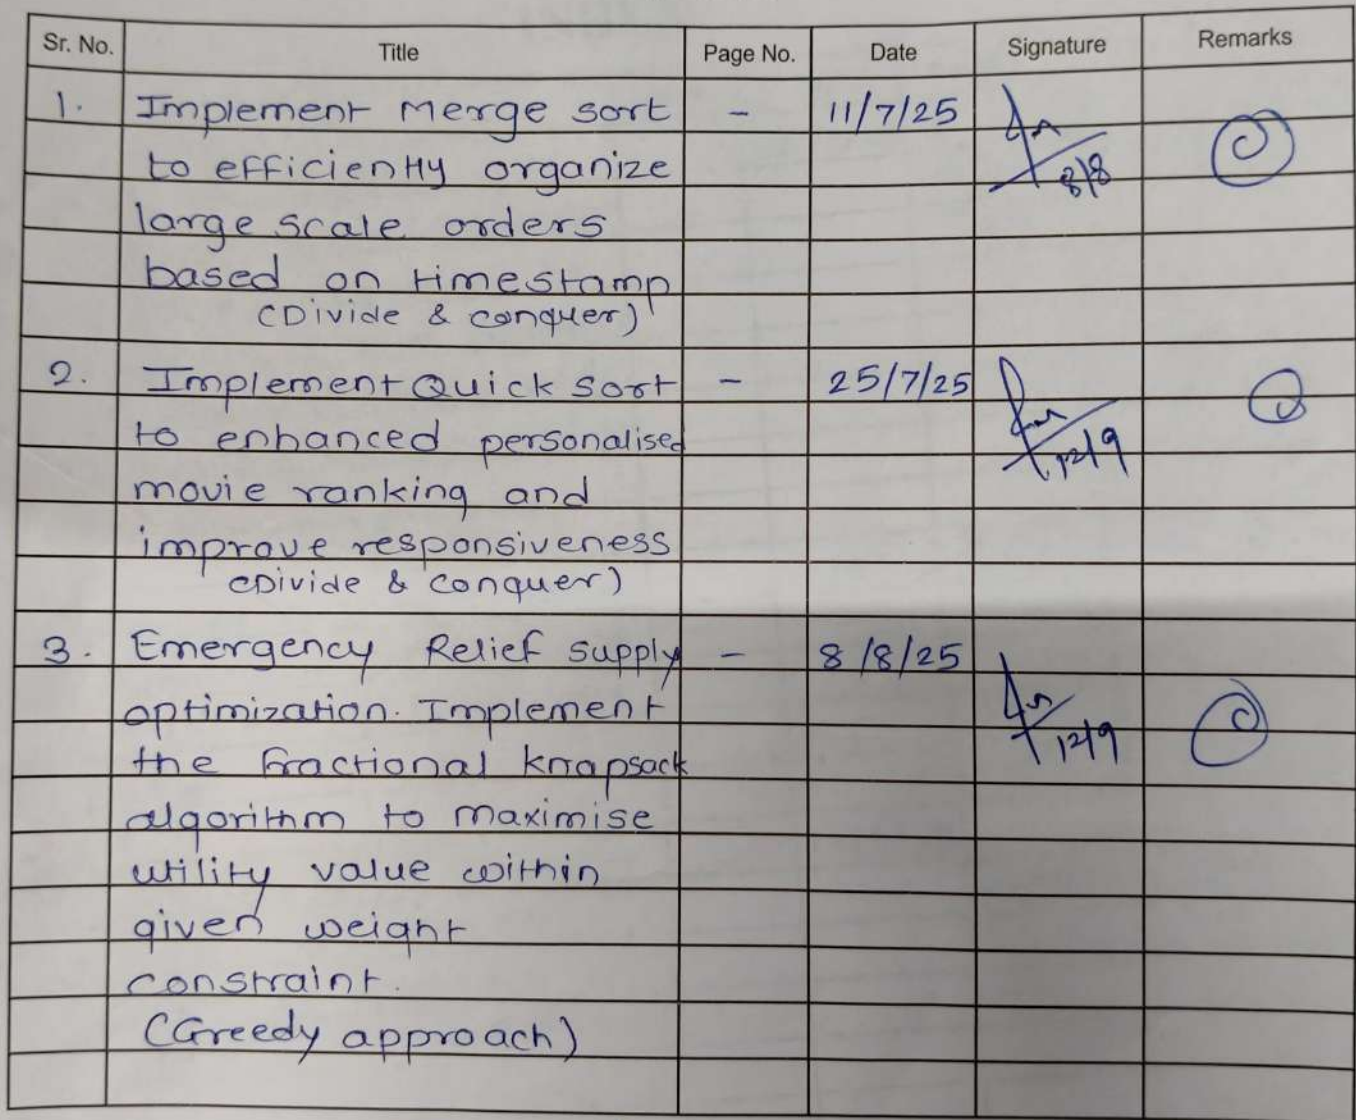 Sr. No. Title Page No. Date Signature Remarks
1. Implement Merge sort - 11/7/25
to efficiently organize 8/8
large scale orders
based on timestamp
(Divide & conquer)
2. Implement Quick Sort - 25/7/25
to enhanced personalised 12/9
movie ranking and
improve responsiveness
(Divide & conquer)
3. Emergency Relief supply - 8/8/25
optimization. Implement 12/9
the fractional knapsack
algorithm to maximise
utility value within
given weight
constraint.
(Greedy approach)